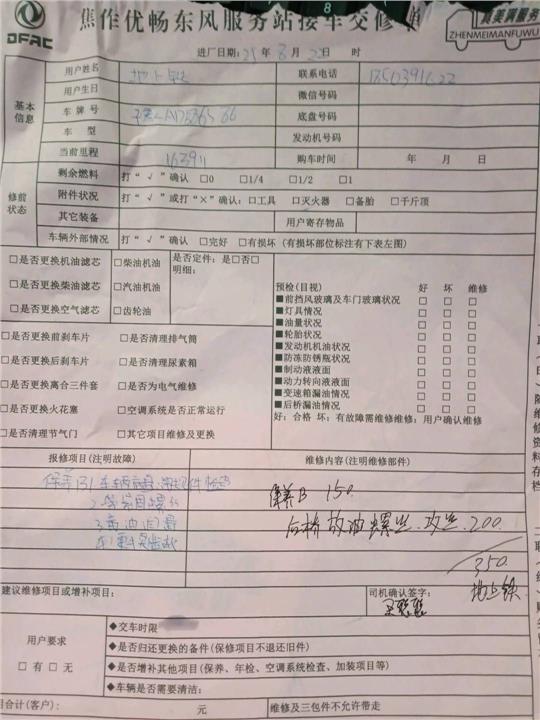 DFAC
焦作优畅东风服务站接车交修单
真美满服务
ZHENMEIMANFUWU
进厂日期: 21年8月2日 时
基本信息
用户姓名 地上铁 联系电话
用户生日 微信号码
车牌号 底盘号码
车型 发动机号码
当前里程 163911 购车时间 年 月 日
修前状态
剩余燃料 打“√”确认 □0 □1/4 □1/2 □1
附件状况 打“√”或打“×”确认:□工具 □灭火器 □备胎 □千斤顶
其它装备 用户寄存物品
车辆外部情况 打“√”确认 □完好 □有损坏 (有损坏部位标注有下表左图)
□是否更换机油滤芯 □柴油机油 是否定件:是□否□
明细:
□是否更换柴油滤芯 □汽油机油
□是否更换空气滤芯 □齿轮油
□是否更换前刹车片 □是否清理排气筒
□是否更换后刹车片 □是否清理尿素箱
□是否更换离合三件套 □是否为电气维修
□是否更换火花塞 □空调系统是否正常运行
□是否清理节气门 □其它项目维修及更换
预检(目视) 好 坏 维修
■前挡风玻璃及车门玻璃状况 □ □ □
■灯具情况 □ □ □
■油量状况 □ □ □
■轮胎状况 □ □ □
■发动机机油状况 □ □ □
■防冻防锈瓶状况 □ □ □
■制动液液面 □ □ □
■动力转向液液面 □ □ □
■变速箱漏油情况 □ □ □
■后桥漏油情况 □ □ □
好:合格 坏:有故障需维修维修:用户确认维修
报修项目(注明故障) 维修内容(注明维修部件)
保养B 150.
后桥放油螺丝.攻丝.200.
350.
建议维修项目或增补项目:
司机确认签字:
地上铁
用户要求
□有□无
◆交车时限
◆是否归还更换的备件(保修项目不退还旧件)
◆是否增补其他项目(保养、年检、空调系统检查、加装项目等)
◆车辆是否需要清洁:
合计(客户): 元 维修及三包件不允许带走